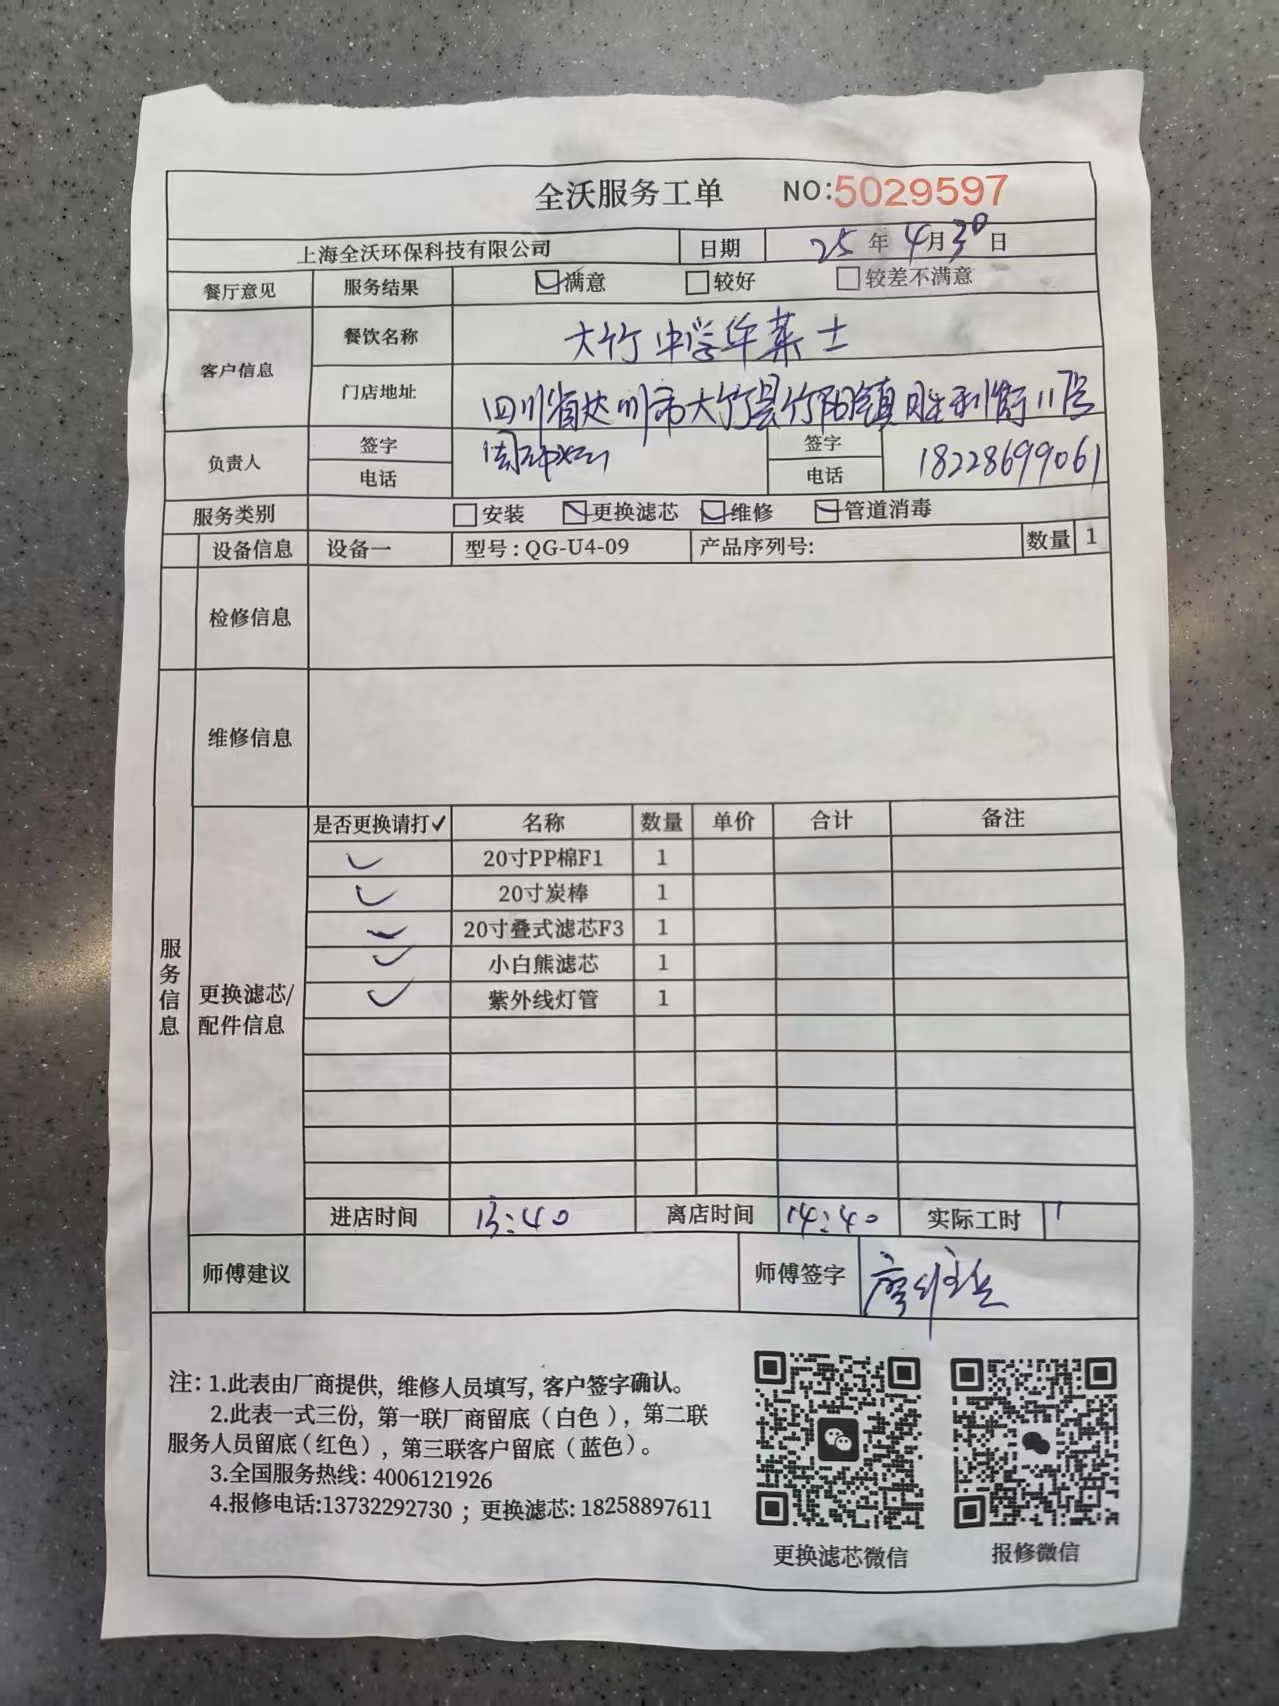 全沃服务工单 NO:5029597
上海全沃环保科技有限公司 日期 25年4月30日
餐厅意见 服务结果 满意 较好 较差不满意
客户信息 餐饮名称 大竹中学华莱士
门店地址 四川省达州市大竹县竹阳镇胜利街117号
负责人 签字 签字
电话 电话 18228699061
服务类别 安装 更换滤芯 维修 管道消毒
设备信息 设备一 型号：QG-U4-09 产品序列号： 数量 1
检修信息
维修信息
服务信息
更换滤芯/配件信息
是否更换请打✓ 名称 数量 单价 合计 备注
✓ 20寸PP棉F1 1
✓ 20寸炭棒 1
✓ 20寸叠式滤芯F3 1
✓ 小白熊滤芯 1
✓ 紫外线灯管 1
进店时间 13:40 离店时间 14:40 实际工时 1
师傅建议 师傅签字
注：1.此表由厂商提供，维修人员填写，客户签字确认。
2.此表一式三份，第一联厂商留底（白色），第二联
服务人员留底（红色），第三联客户留底（蓝色）。
3.全国服务热线：4006121926
4.报修电话:13732292730；更换滤芯：18258897611
更换滤芯微信 报修微信